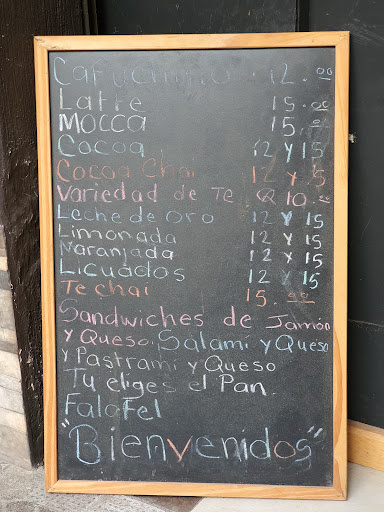 Capuchino. 12.00
Latte 15.00
Mocca 15.00
Cocoa 12 y 15
Cocoa Chai 12 y 15
Variedad de Te Q 10.00
Leche de oro 12 y 15
Limonada 12 y 15
Naranjada 12 y 15
Licuados 12 y 15
Te chai 15.00
Sandwiches de Jamón
y Queso, Salami y Queso
y Pastrami y Queso
Tu eliges el Pan.
Falafel
"Bienvenidos"